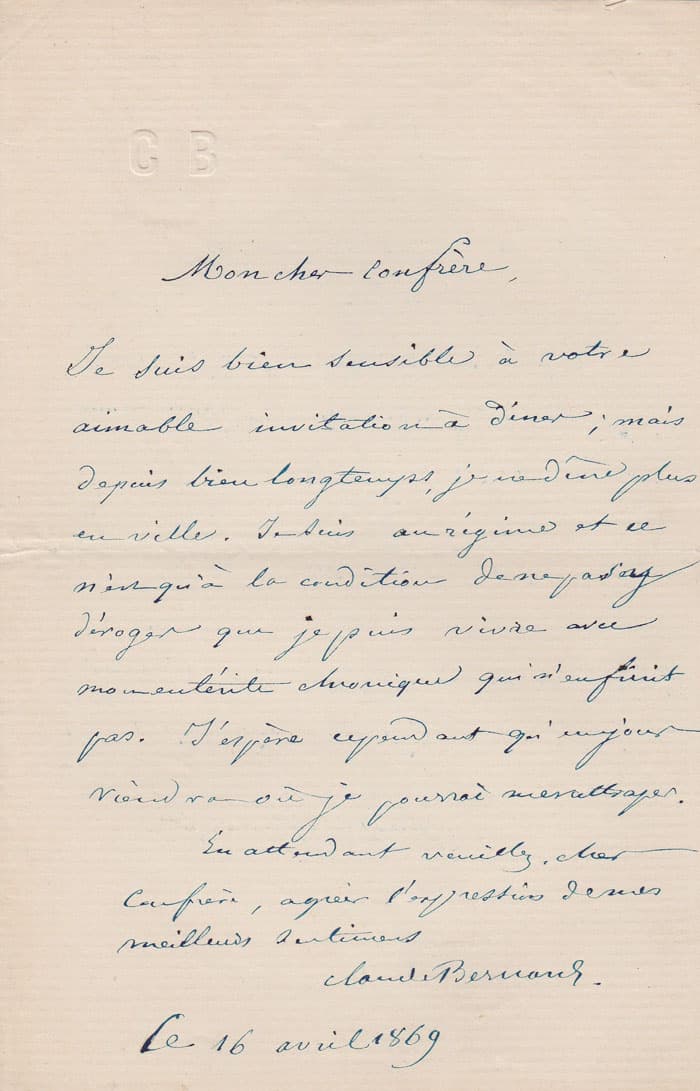 C B
Mon cher Confrère,
Je suis bien sensible à votre
aimable invitation à dîner; mais
depuis bien longtemps, je ne dîne plus
en ville. Je suis au régime et ce
n'est qu'à la condition de ne pas y
déroger que je puis vivre avec
mon entérite chronique qui n'en finit
pas. J'espère cependant qu'un jour
viendra où je pourrai me rattraper.
En attendant veuillez, cher
Confrère, agréer l'expression de mes
meilleurs sentimens
Claude Bernard.
le 16 avril 1869